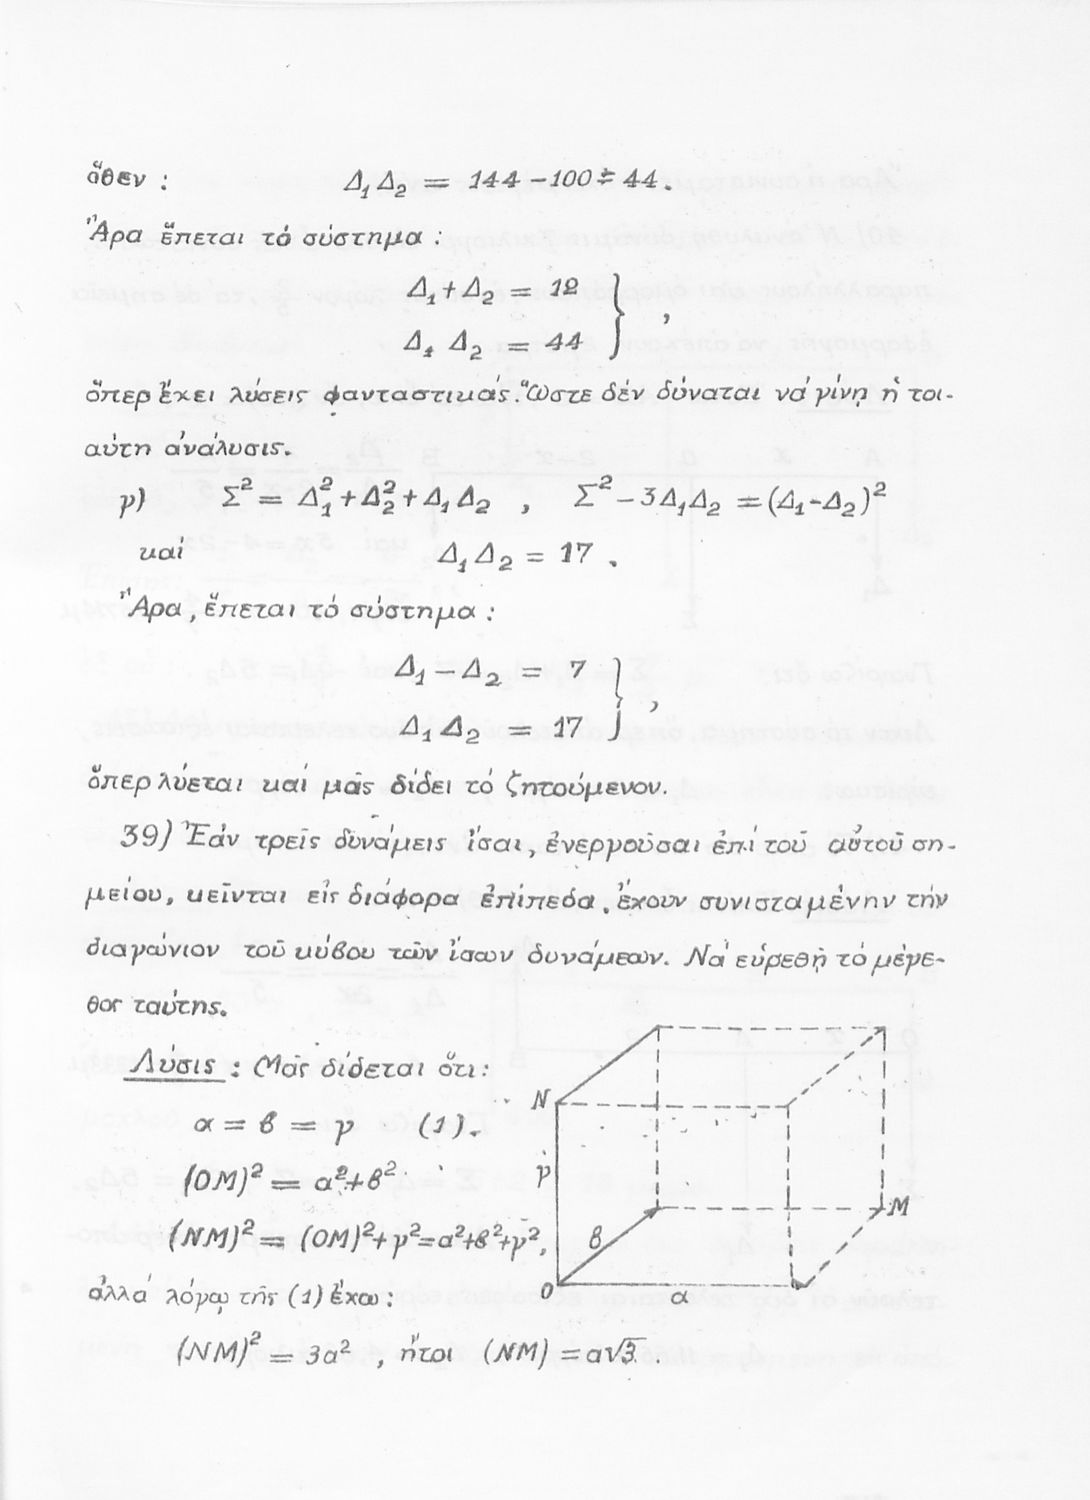 ὅθεν : Δ₁Δ₂ = 144 - 100 = 44.
Ἄρα ἕπεται τό σύστημα :
Δ₁ + Δ₂ = 12
Δ₁ Δ₂ = 44 } ,
ὅπερ ἔχει λύσεις φανταστικάς. Ὥστε δέν δύναται νά γίνῃ ἡ τοι-
αύτη ἀνάλυσις.
γ) Σ² = Δ₁² + Δ₂² + Δ₁Δ₂ , Σ² - 3Δ₁Δ₂ = (Δ₁-Δ₂)²
καί Δ₁Δ₂ = 17 .
Ἄρα, ἕπεται τό σύστημα :
Δ₁ - Δ₂ = 7
Δ₁ Δ₂ = 17 } ,
ὅπερ λύεται καί μᾶς δίδει τό ζητούμενον.
39) Ἐάν τρεῖς δυνάμεις ἴσαι, ἐνεργοῦσαι ἐπί τοῦ αὐτοῦ ση-
μείου, κεῖνται εἰς διάφορα ἐπίπεδα, ἔχουν συνισταμένην τήν
διαγώνιον τοῦ κύβου τῶν ἴσων δυνάμεων. Νά εὑρεθῇ τό μέγε-
θος ταύτης.
Λύσις : Μᾶς δίδεται ὅτι :
α = β = γ (1).
(ΟΜ)² = α²+β²
(ΝΜ)² = (ΟΜ)²+γ²=α²+β²+γ²,
ἀλλά λόγῳ τῆς (1) ἔχω :
(ΝΜ)² = 3α² , ἤτοι (ΝΜ) = α√3 .
Ν
γ
Μ
β
Ο
α